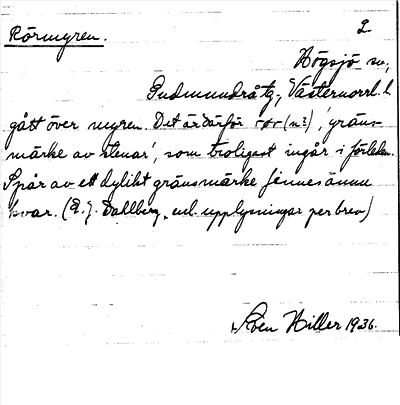 Rörmyren. 2
Högsjö sn,
Gudmundrå tg, Västernorrl. l.
gått över myren. Det är därför rør (n?), 'gräns-
märke av stenar', som troligast ingår i förleden.
Spår av ett dylikt gränsmärke finnes ännu
kvar. (E. J. Dahlberg, enl. upplysningar per brev)
Sven Hiller 1936.